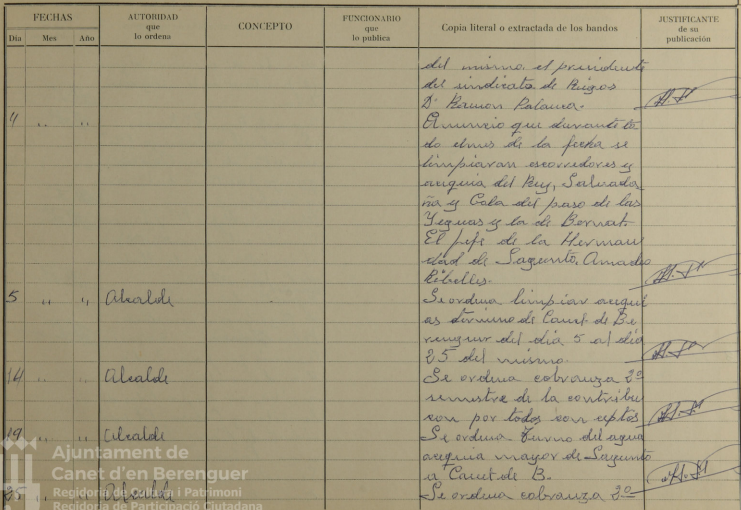 FECHAS
AUTORIDAD
que
lo ordena
CONCEPTO
FUNCIONARIO
que
lo publica
Copia literal o extractada de los bandos
JUSTIFICANTE
de su
publicación
Día Mes Año
del mismo. el presidente
del sindicato de Riegos
Dn Ramon Palanca.
4 " " Anuncio que durante to
do el mes de la fecha se
limpiaran escorredores y
acequia del Rey, Salvada
ña y Cola del paso de las
Yeguas y la de Bernat.
El jefe de la Herman
dad de Sagunto. Amadeo
Ribelles.
5 " " Alcalde Se ordena limpiar acequi
as termino de Canet de Be
renguer del dia 5 al dia
25 del mismo.
14 " " Alcalde Se ordena cobranza 2º
semestre de la contribu
cion por todos conceptos
19 " " Alcalde Se ordena turno del agua
acequia mayor de Sagunto
a Canet de B.
25 " Alcalde Se ordena cobranza 2º
Ajuntament de
Canet d'en Berenguer
Regidoria de Cultura i Patrimoni
Regidoria de Participació Ciutadana